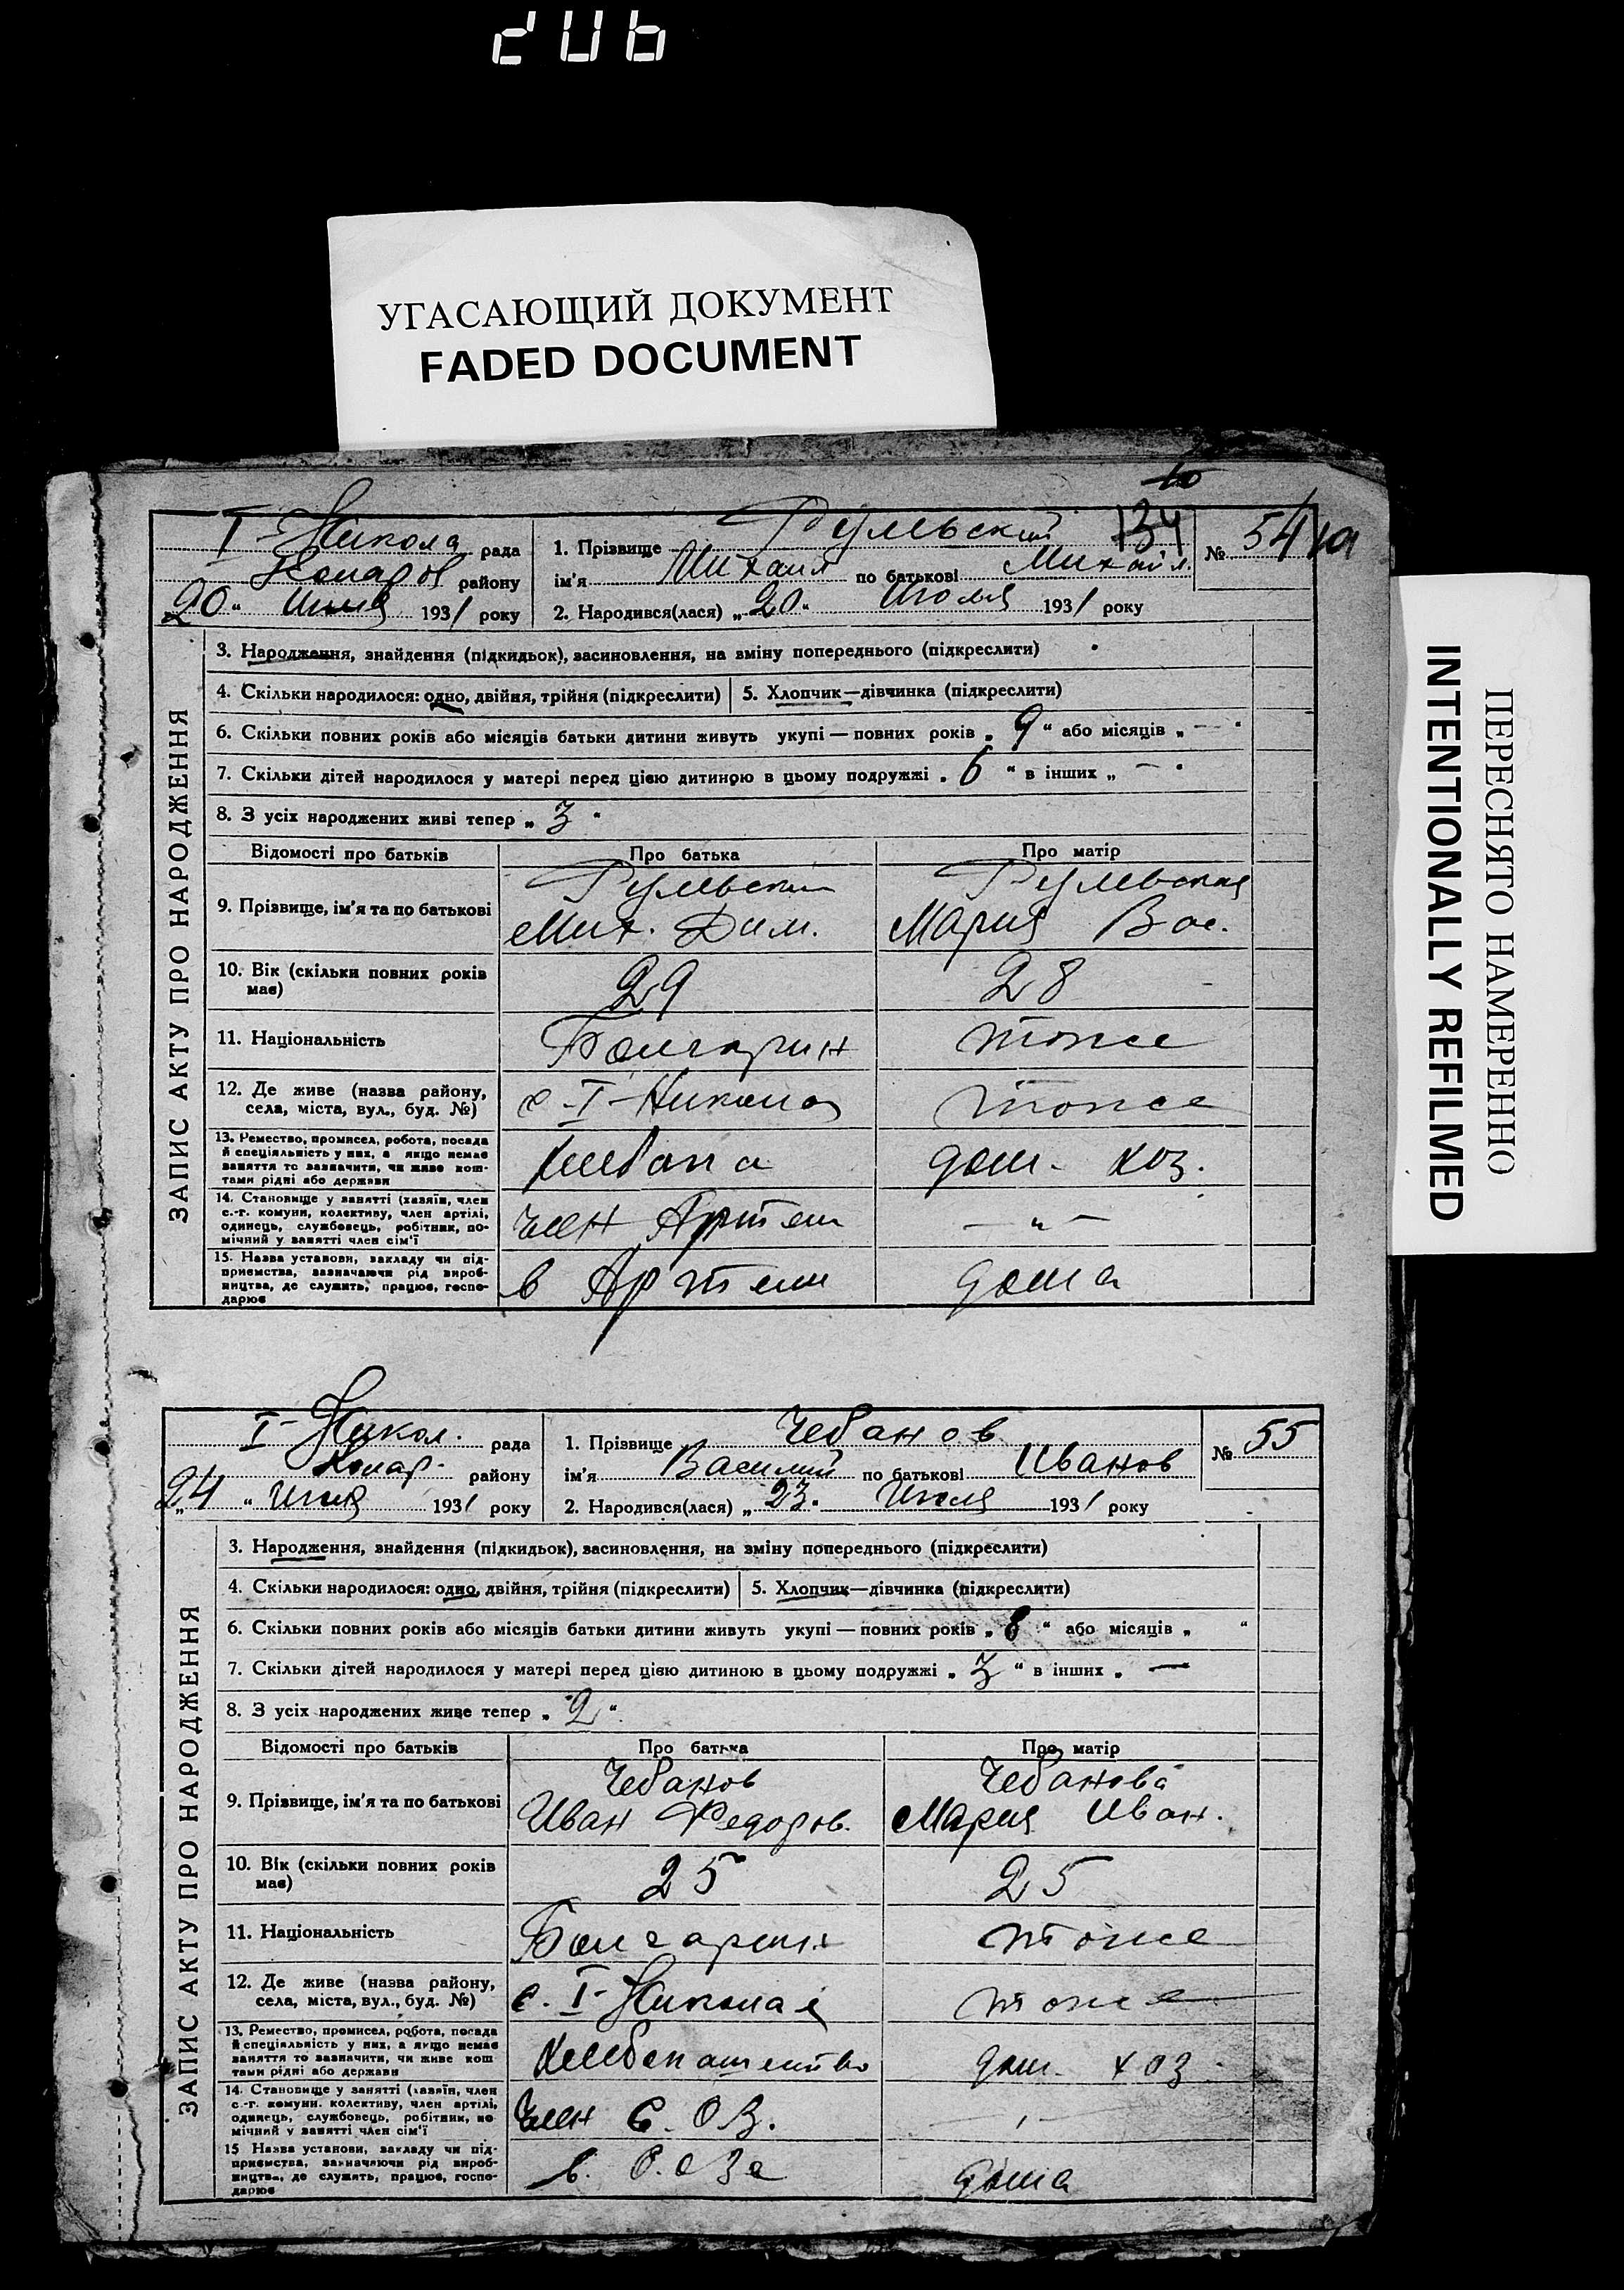 206
УГАСАЮЩИЙ ДОКУМЕНТ
FADED DOCUMENT
ПЕРЕСНЯТО НАМЕРЕННО
INTENTIONALLY REFILMED
10
134
ЗАПИС АКТУ ПРО НАРОДЖЕННЯ
I-Никола рада
Комаров району
„20“ Июля 1931 року
1. Прізвище Румевский
ім'я Михаил по батькові Михайл.
2. Народився(лася) „20“ Июля 1931 року
№ 54
3. Народження, знайдення (підкидьок), засиновлення, на зміну попереднього (підкреслити)
4. Скільки народилося: одно, двійня, трійня (підкреслити) 5. Хлопчик—дівчинка (підкреслити)
6. Скільки повних років або місяців батьки дитини живуть укупі — повних років „9“ або місяців „—“
7. Скільки дітей народилося у матері перед цією дитиною в цьому подружжі „6“ в інших „—“
8. З усіх народжених живі тепер „3“
Відомості про батьків Про батька Про матір
9. Прізвище, ім'я та по батькові
Мих. Дим. Мария Вас.
10. Вік (скільки повних років має) 29 28
11. Національність Болгарин тоже
12. Де живе (назва району,
села, міста, вул., буд. №) с-I-Никола тоже
13. Ремество, промисел, робота, посада
й спеціяльність у них, а якщо немає
заняття то зазначити, чи живе кош-
тами рідні або держави
Хлебопа дом. хоз.
14. Становище у занятті (хазяїн, член
с.-г. комуни, колективу, член артілі,
одинець, службовець, робітник, по-
мічний у занятті член сім'ї
член Артели — „ —
15. Назва установи, закладу чи під-
приємства, зазначаючи рід вироб-
ництва, де служить, працює, госпо-
дарює
в Артели дома
ЗАПИС АКТУ ПРО НАРОДЖЕННЯ
I-Никол. рада
Комар. району
„24“ Июля 1931 року
1. Прізвище Чебанов
ім'я Василий по батькові Иванов
2. Народився(лася) „23“ Июля 1931 року
№ 55
3. Народження, знайдення (підкидьок), засиновлення, на зміну попереднього (підкреслити)
4. Скільки народилося: одно, двійня, трійня (підкреслити) 5. Хлопчик—дівчинка (підкреслити)
6. Скільки повних років або місяців батьки дитини живуть укупі — повних років „8“ або місяців „ “
7. Скільки дітей народилося у матері перед цією дитиною в цьому подружжі „3“ в інших „ —
8. З усіх народжених живе тепер „2“
Відомості про батьків Про батька Про матір
Чебанов Чебанова
9. Прізвище, ім'я та по батькові Иван Федоров. Мария Иван.
10. Вік (скільки повних років має) 25 25
11. Національність Болгарин тоже
12. Де живе (назва району,
села, міста, вул., буд. №) с. I-Николай тоже
13. Ремество, промисел, робота, посада
й спеціяльність у них, а якщо немає
заняття то зазначити, чи живе кош
тами рідні або держави
Хлебопашество дом. хоз.
14. Становище у занятті (хазяїн, член
с.-г. комуни. колективу, член артілі,
одинець, службовець, робітник, по-
мічний у занятті член сім'ї
член С. О З.
15 Назва установи, закладу чи під-
приємства, зазначаючи рід вироб-
ництва, де служить, працює, госпо-
дарює
в. С.оЗе дома